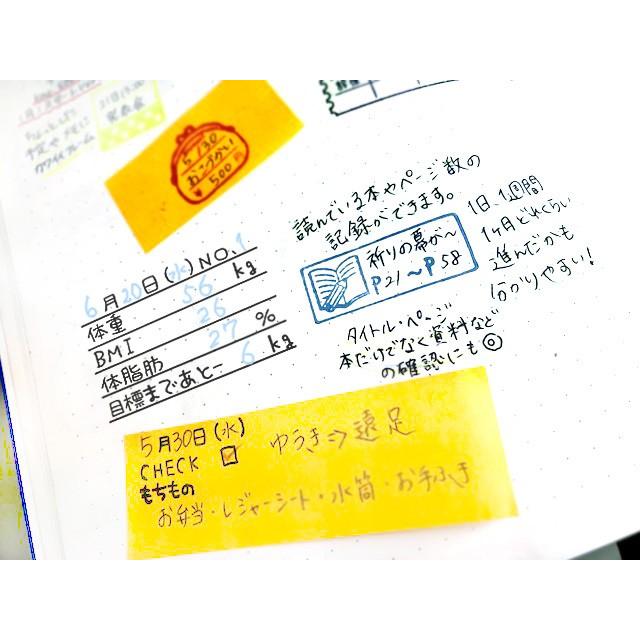 5/30
おこづかい
500円
読んでいる本やページ数の
記録ができます。
祈りの幕が〜
P21〜P58
1日、1週間
1ヶ月どれくらい
進んだかも
分かりやすい!
タイトル・ページ
本だけでなく資料など
の確認にも◎
6月20日(水) NO.1
体重 56 kg
BMI 26
体脂肪 27 %
目標まであとー 6 kg
5月30日(水) ゆうき⇒遠足
CHECK ☑
もちもの
お弁当・レジャーシート・水筒・お手ふき